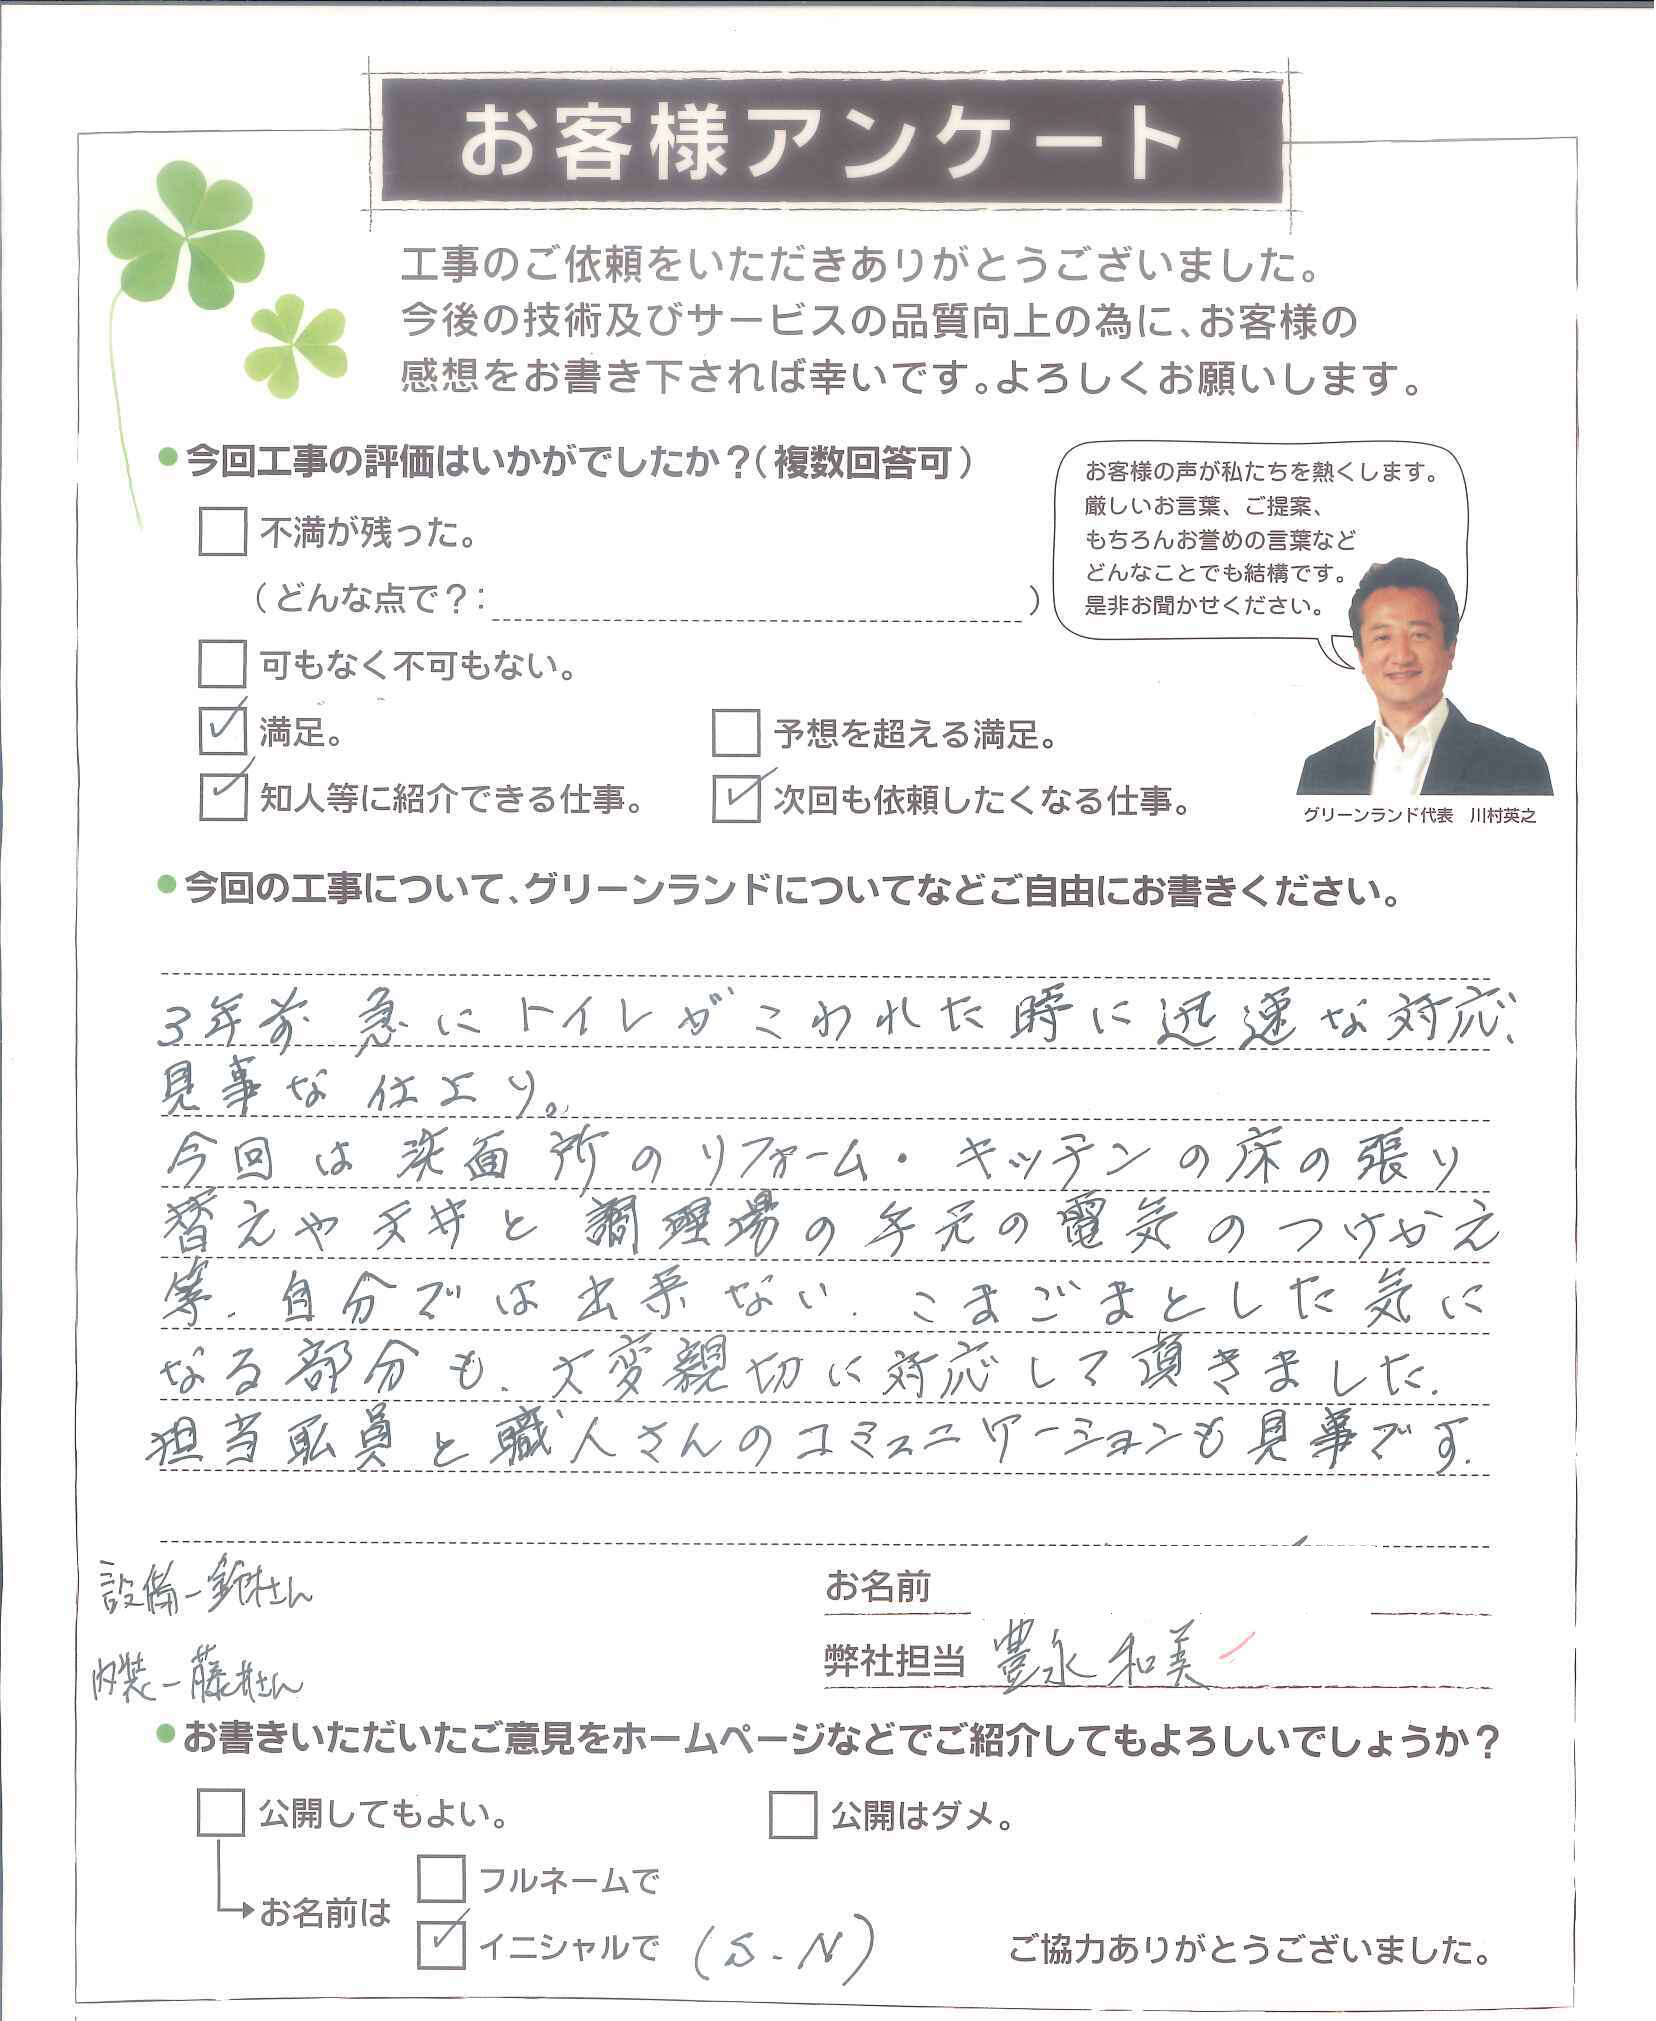 お客様アンケート
工事のご依頼をいただきありがとうございました。
今後の技術及びサービスの品質向上の為に、お客様の
感想をお書き下されば幸いです。よろしくお願いします。
●今回工事の評価はいかがでしたか？（複数回答可）
不満が残った。
（どんな点で？： ）
可もなく不可もない。
満足。
予想を超える満足。
知人等に紹介できる仕事。
次回も依頼したくなる仕事。
お客様の声が私たちを熱くします。
厳しいお言葉、ご提案、
もちろんお誉めの言葉など
どんなことでも結構です。
是非お聞かせください。
グリーンランド代表 川村英之
●今回の工事について、グリーンランドについてなどご自由にお書きください。
3年前 急にトイレがこわれた時に迅速な対応、
見事な仕上り。
今回は洗面所のリフォーム・キッチンの床の張り
替えや天井と調理場の手元の電気のつけかえ
等、自分では出来ない、こまごまとした気に
なる部分も、大変親切に対応して頂きました。
担当職員と職人さんのコミュニケーションも見事です。
設備ー鈴木さん
内装ー藤井さん
お名前
弊社担当 豊永和美
●お書きいただいたご意見をホームページなどでご紹介してもよろしいでしょうか？
公開してもよい。
公開はダメ。
お名前は
フルネームで
イニシャルで (S.N)
ご協力ありがとうございました。